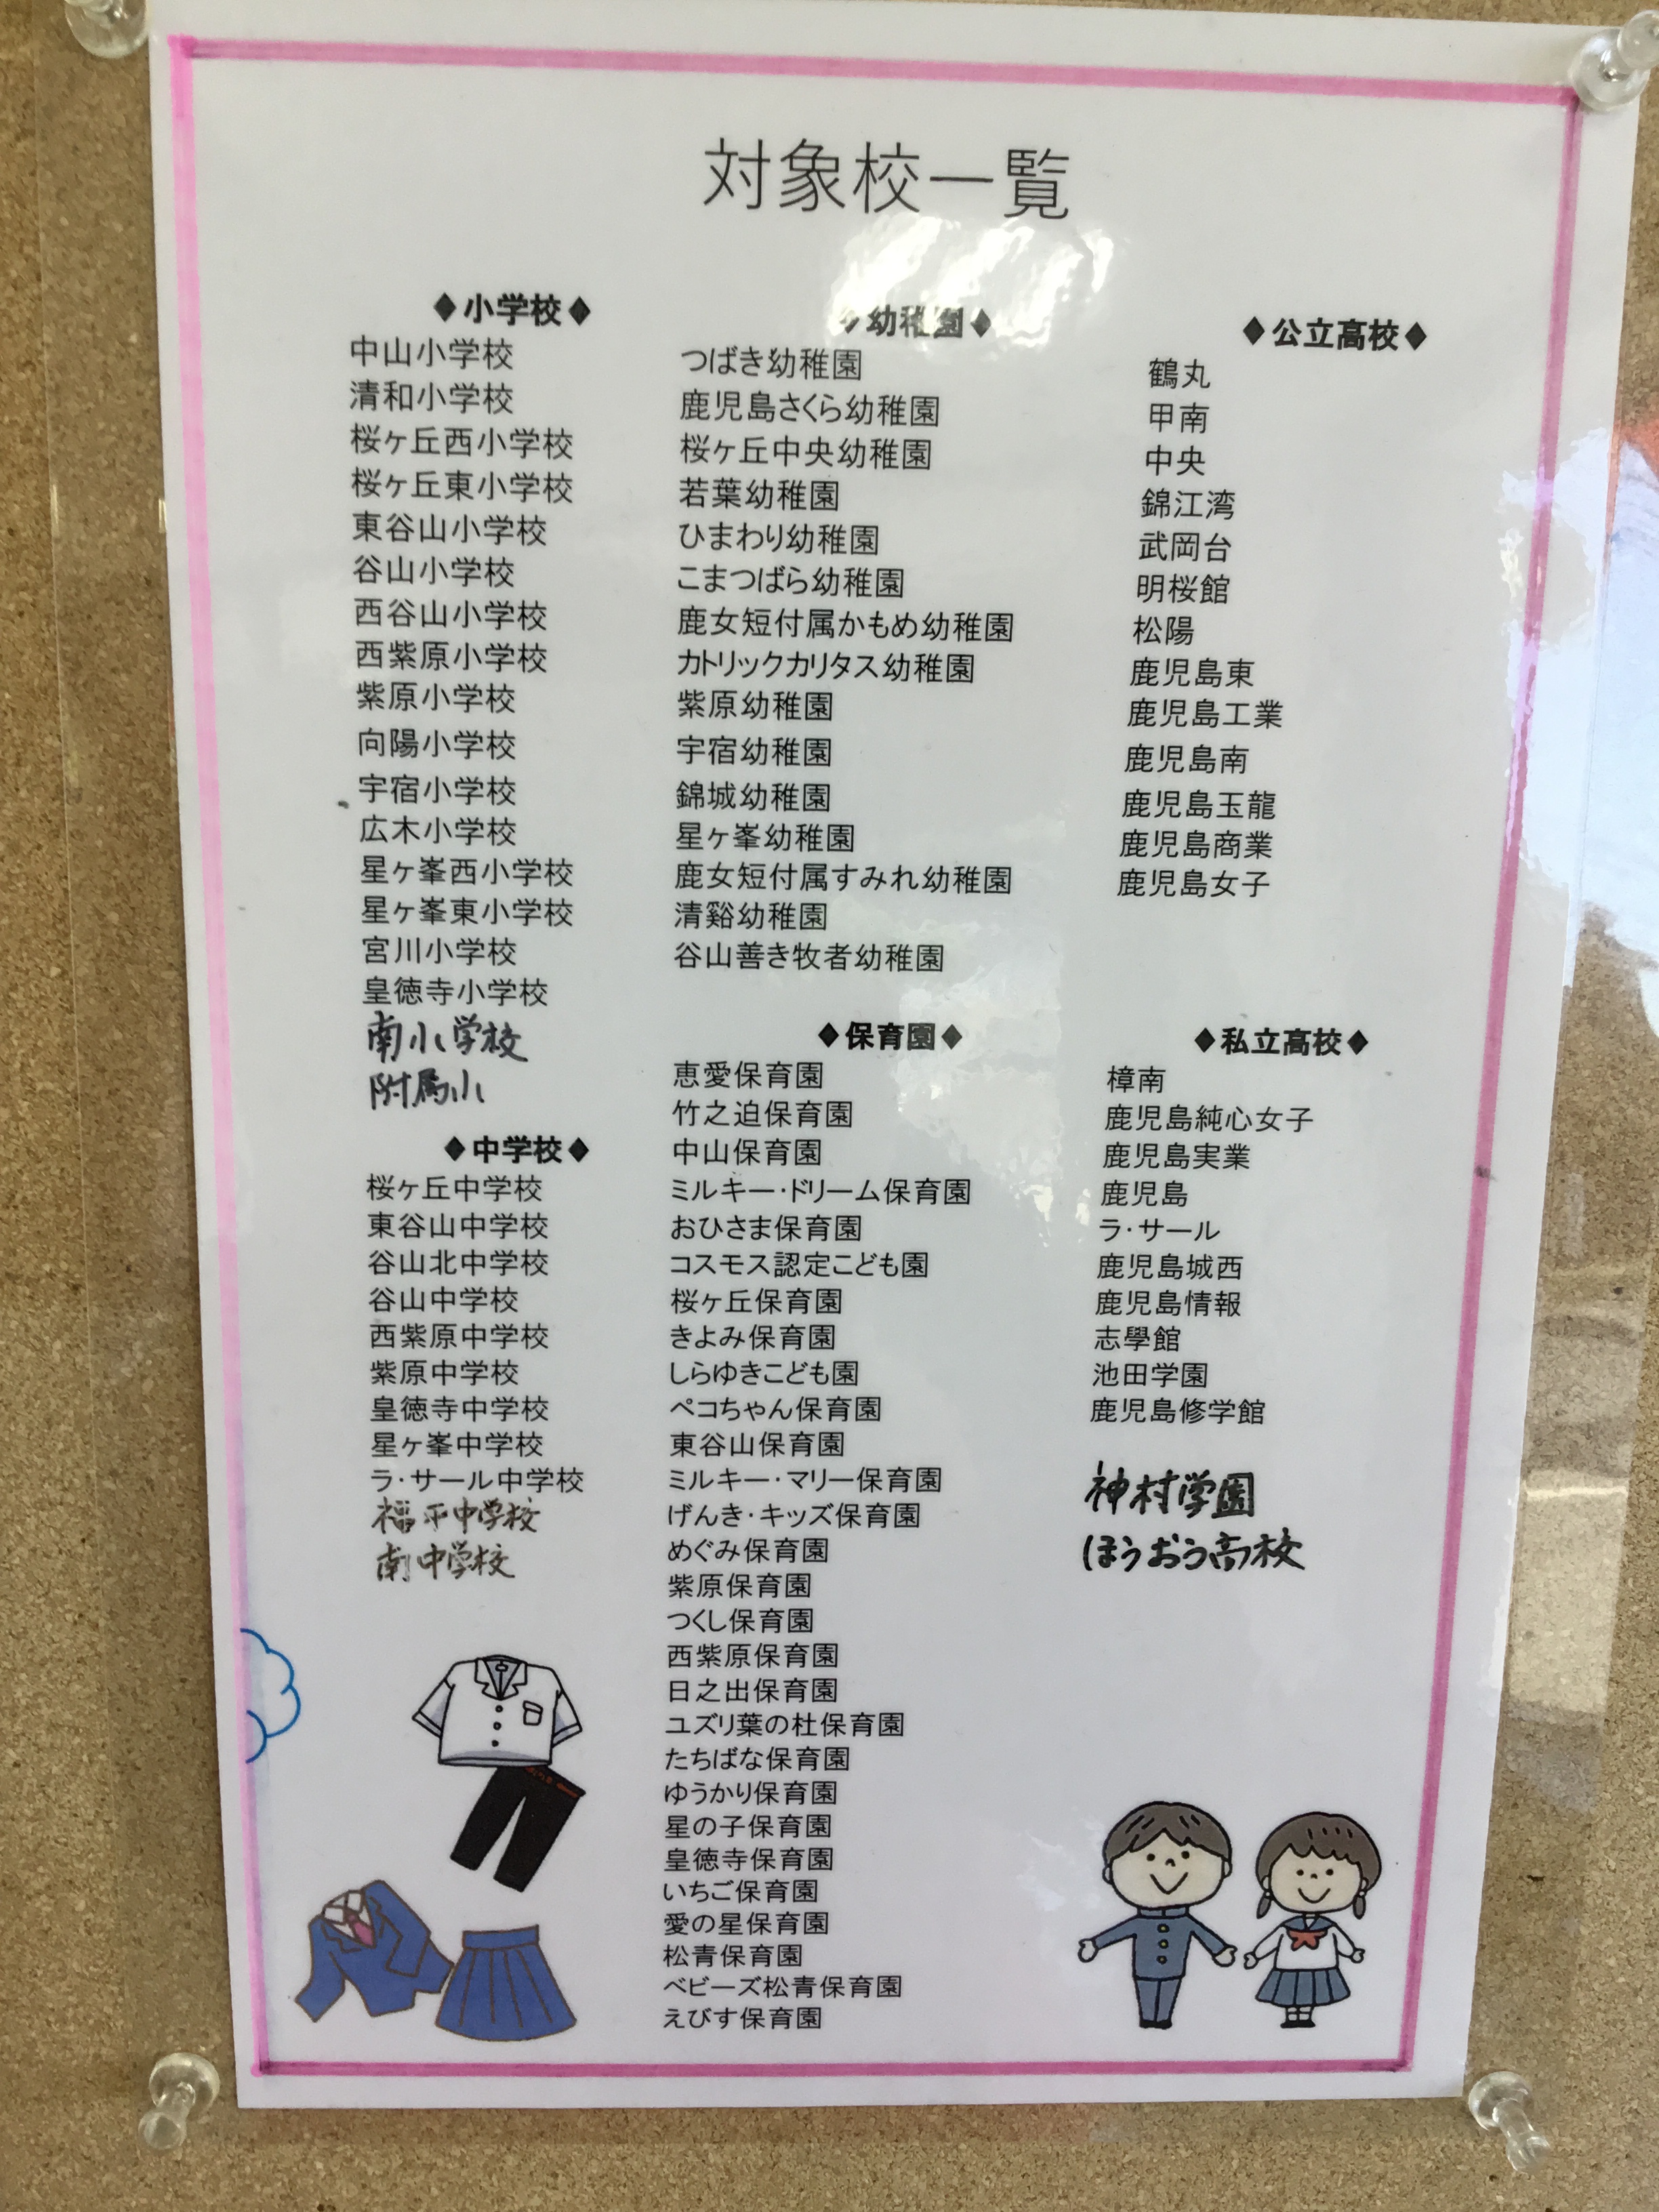 対象校一覧
◆小学校◆
中山小学校
清和小学校
桜ヶ丘西小学校
桜ヶ丘東小学校
東谷山小学校
谷山小学校
西谷山小学校
西紫原小学校
紫原小学校
向陽小学校
宇宿小学校
広木小学校
星ヶ峯西小学校
星ヶ峯東小学校
宮川小学校
皇徳寺小学校
南小学校
附属小
◆中学校◆
桜ヶ丘中学校
東谷山中学校
谷山北中学校
谷山中学校
西紫原中学校
紫原中学校
皇徳寺中学校
星ヶ峯中学校
ラ・サール中学校
福平中学校
南中学校
◆幼稚園◆
つばき幼稚園
鹿児島さくら幼稚園
桜ヶ丘中央幼稚園
若葉幼稚園
ひまわり幼稚園
こまつばら幼稚園
鹿女短付属かもめ幼稚園
カトリックカリタス幼稚園
紫原幼稚園
宇宿幼稚園
錦城幼稚園
星ヶ峯幼稚園
鹿女短付属すみれ幼稚園
清谿幼稚園
谷山善き牧者幼稚園
◆保育園◆
恵愛保育園
竹之迫保育園
中山保育園
ミルキー・ドリーム保育園
おひさま保育園
コスモス認定こども園
桜ヶ丘保育園
きよみ保育園
しらゆきこども園
ペコちゃん保育園
東谷山保育園
ミルキー・マリー保育園
げんき・キッズ保育園
めぐみ保育園
紫原保育園
つくし保育園
西紫原保育園
日之出保育園
ユズリ葉の杜保育園
たちばな保育園
ゆうかり保育園
星の子保育園
皇徳寺保育園
いちご保育園
愛の星保育園
松青保育園
ベビーズ松青保育園
えびす保育園
◆公立高校◆
鶴丸
甲南
中央
錦江湾
武岡台
明桜館
松陽
鹿児島東
鹿児島工業
鹿児島南
鹿児島玉龍
鹿児島商業
鹿児島女子
◆私立高校◆
樟南
鹿児島純心女子
鹿児島実業
鹿児島
ラ・サール
鹿児島城西
鹿児島情報
志學館
池田学園
鹿児島修学館
神村学園
ほうおう高校